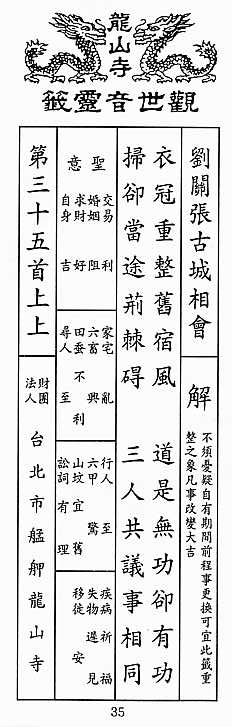 龍山寺
觀世音靈籤
劉關張古城相會
解
不須憂疑自有期間前程事更換可宜此籤重
整之象凡事改變大吉
衣冠重整舊宿風 道是無功卻有功
掃卻當途荊棘碍 三人共議事相同
聖意
交易 利
婚姻 阻
求財 好
自身 吉
家宅 亂
六畜 興
田蚕 不利
尋人 至
行人 至
六甲 驚
山墳 宜舊
訟詞 有理
疾病 祈福
失物 遲見
移徙 安
第三十五首上上
財團
法人
台北市艋舺龍山寺
35